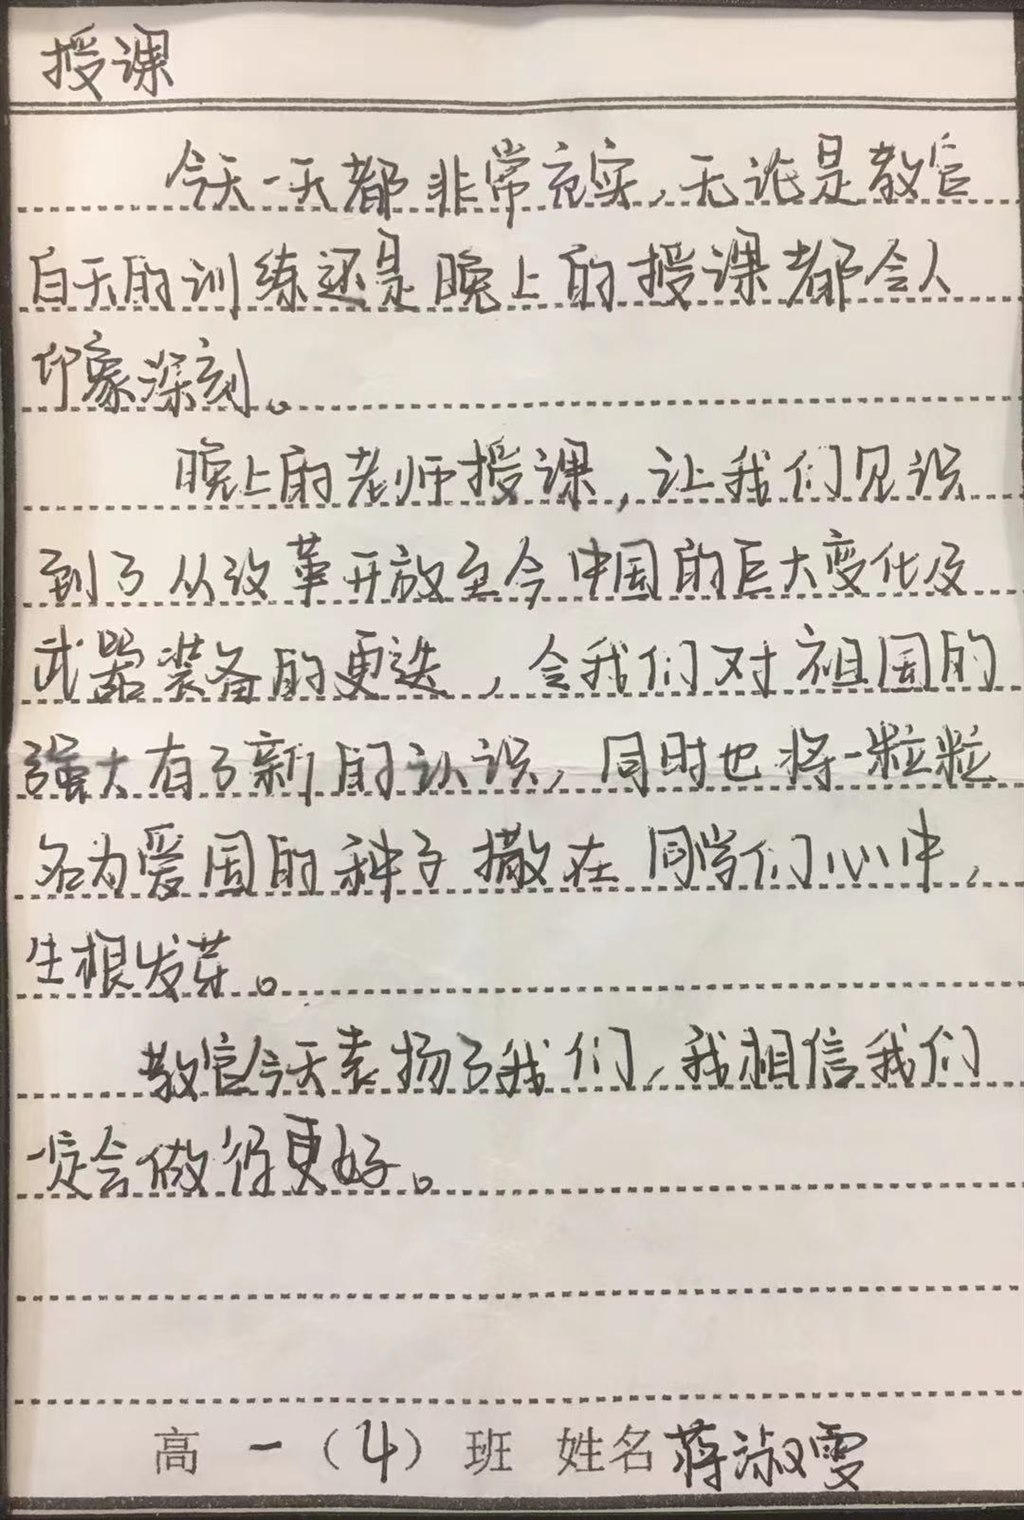 授课
今天一天都非常充实，无论是教官
白天的训练还是晚上的授课都令人
印象深刻。
晚上的老师授课，让我们见识
到了从改革开放至今中国的巨大变化及
武器装备的更迭，令我们对祖国的
强大有了新的认识，同时也将一粒粒
名为爱国的种子撒在同学们心中，
生根发芽。
教官今天表扬了我们，我相信我们
一定会做得更好。
高一（4）班 姓名蒋淑雯